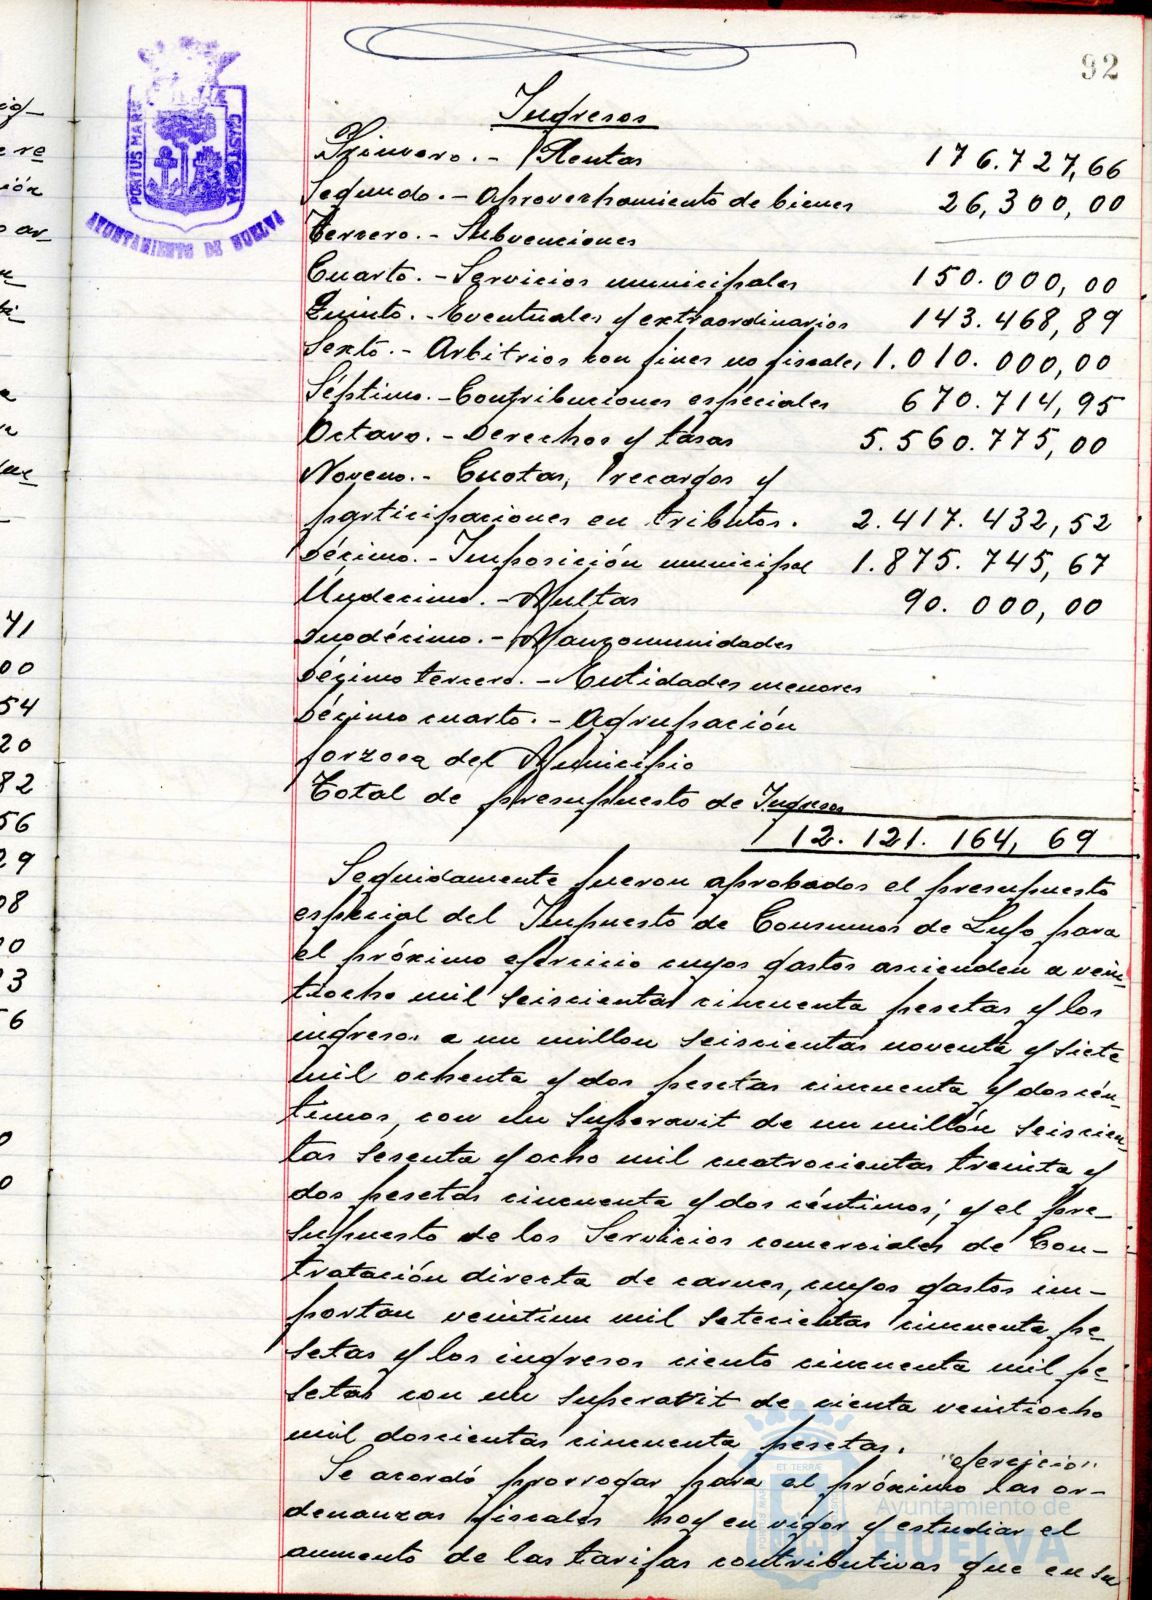 92
PORTUS MARIS
CUSTODIA
AYUNTAMIENTO DE HUELVA
Ingresos
Primero.- Rentas 176.727,66
Segundo.- Aprovechamiento de bienes 26,300,00
Tercero.- Subvenciones
Cuarto.- Servicios municipales 150.000,00
Quinto.- Eventuales y extraordinarios 143.468,89
Sexto.- Arbitrios con fines no fiscales 1.010.000,00
Séptimo.- Contribuciones especiales 670.714,95
Octavo.- Derechos y tasas 5.560.775,00
Noveno.- Cuotas, recargos y
participaciones en tributos. 2.417.432,52
Décimo.- Imposición municipal 1.875.745,67
Undecimo.- Multas 90.000,00
Duodécimo.- Mancomunidades
Décimo tercero.- Entidades menores
Décimo cuarto.- Agrupación
forzosa del Municipio
Total de presupuesto de Ingresos
12.121.164,69
Seguidamente fueron aprobados el presupuesto
especial del Impuesto de Consumos de Lujo para
el próximo ejercicio cuyos gastos ascienden a vein-
tiocho mil seiscientas cincuenta pesetas y los
ingresos a un millon seiscientas noventa y siete
mil ochenta y dos pesetas cincuenta y dos cén-
timos, con un superavit de un millón seiscien-
tas sesenta y ocho mil cuatrocientas treinta y
dos pesetas cincuenta y dos céntimos; y el pre-
supuesto de los Servicios comerciales de Con-
tratación directa de carnes, cuyos gastos im-
portan veintiun mil setecientas cincuenta pe-
setas y los ingresos ciento cincuenta mil pe-
setas con un superavit de cienta veintiocho
mil doscientas cincuenta pesetas.
"ejercicio"
Se acordó prorrogar para el próximo las or-
denanzas fiscales hoy en vigor y estudiar el
aumento de las tarifas contributivas que en su
Ayuntamiento de
HUELVA